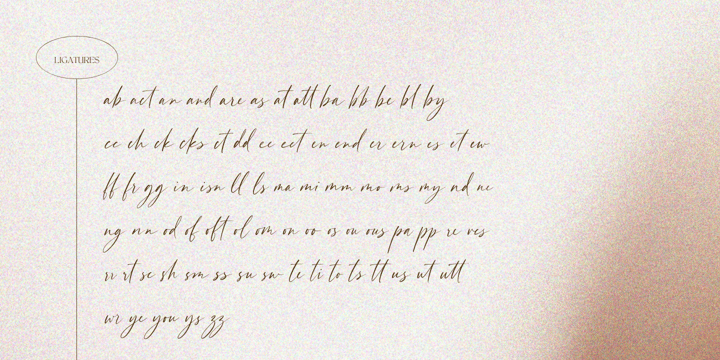 LIGATURES
ab act an and are as at att ba bb be bl by
ce ch ck cks ct dd ee eet en end er ern es et ew
ff fr gg in isn ll ls ma mi mm mo ms my nd ne
ng nn od of oft ol om on oo os ou ous pa pp re res
ri rt se sh sm ss su sw te ti to ts tt us ut utt
wr ye you ys zz